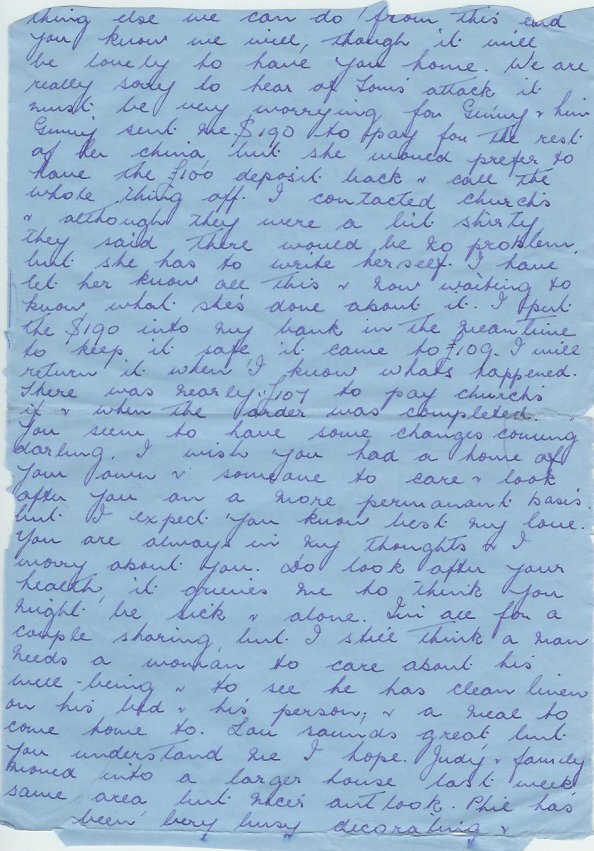 thing else we can do from this end
you know we will, though it will
be lovely to have you home. We are
really sorry to hear of Toms attack it
must be very worrying for Ginny & him
Ginny sent me $190 to pay for the rest
of her china but she would prefer to
have the £100 deposit back & call the
whole thing off. I contacted church's
& although they were a bit shirty,
they said there would be no problem.
but she has to write herself. I have
let her know all this & now waiting to
know what she's done about it. I put
the $190 into my bank in the meantime
to keep it safe it came to £109. I will
return it when I know whats happened.
There was nearly £107 to pay church's
if & when the order was completed.
You seem to have some changes coming
darling. I wish you had a home of
your own & someone to care & look
after you on a more permanant basis.
but I expect you know best my love.
You are always in my thoughts & I
worry about you. Do look after your
health, it grieves me to think you
might be sick & alone. I'm all for a
couple sharing, but I still think a man
needs a woman to care about his
well-being & to see he has clean linen
on his bed & his person, & a meal to
come home to. Lou sounds great, but
you understand me I hope. Judy & family
moved into a larger house last week
same area but nicer outlook. Phil has
been very busy decorating &